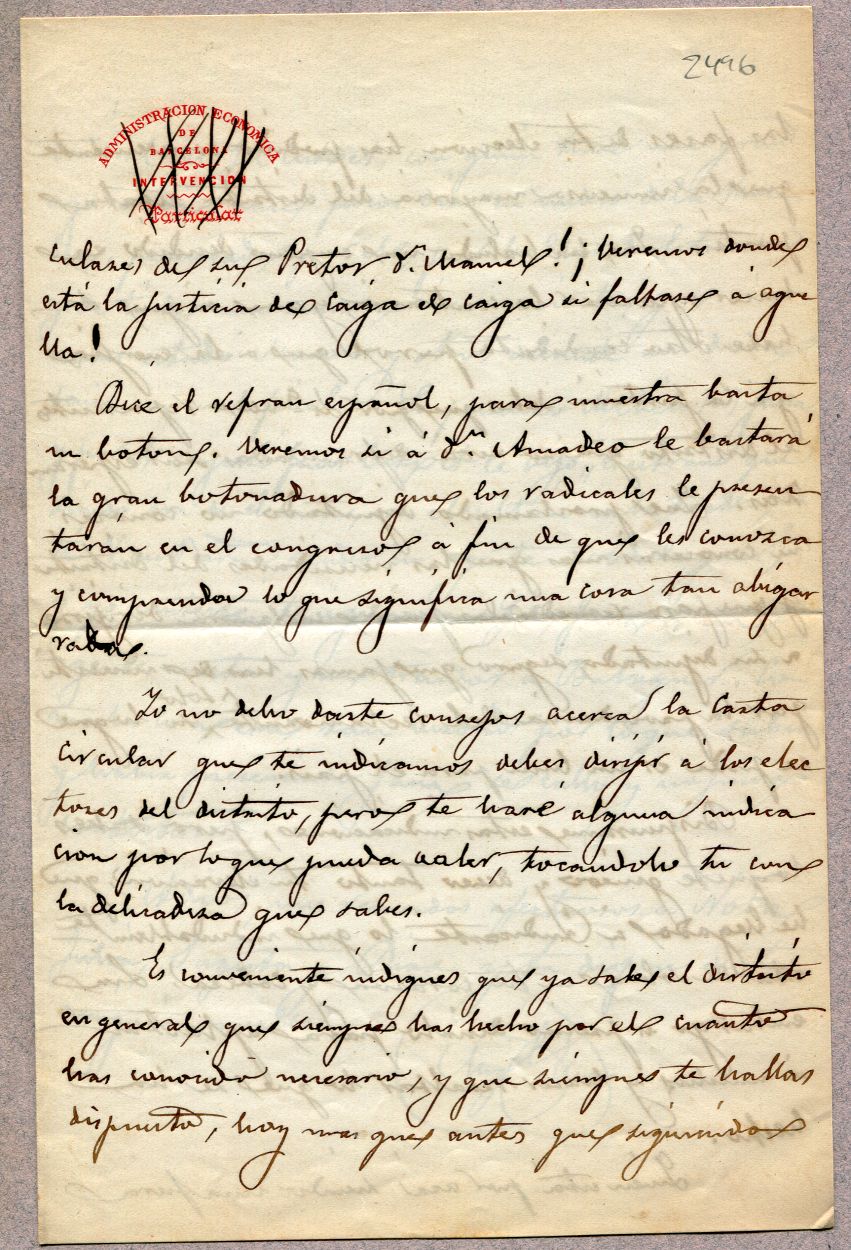 2496
ADMINISTRACION ECONOMICA
DE
BARCELONA
INTERVENCION
Particular
de su Pretor Dn. Manuel! ¡Veremos donde
está la justicia de caiga el caiga si faltase á aque
lla!
Dice el refran español, para muestra basta
un boton. Veremos si á Dn. Amadeo le bastará
la gran botonadura que los radicales le presen
tarán en el congreso á fin de que les conozca
y comprenda lo que significa una cosa tan abigar
rada.
Yo no debo darte consejos acerca la carta
circular que te indicamos debes dirijir á los elec
tores del distrito, pero te haré alguna indica
cion por lo que pueda valer, tocandolo tu con
la delicadeza que sabes.
Es conveniente indiques que ya sabe el distrito
en general que siempre has hecho por el cuanto
has conocido necesario, y que siempre te hallas
dispuesto, hoy mas que antes que siguiendo